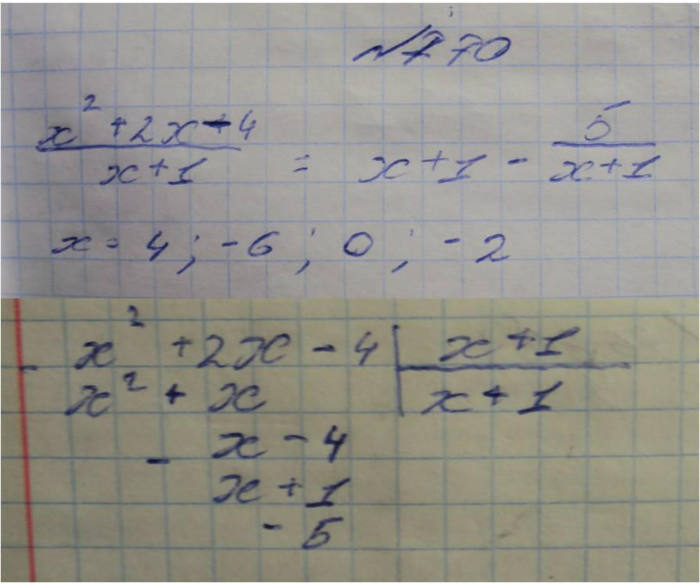 №770
x² + 2x - 4 / x + 1 = x + 1 - 5 / x + 1
x = 4; -6; 0; -2
- x² + 2x - 4 | x + 1
x² + x | x + 1
- x - 4
x + 1
- 5